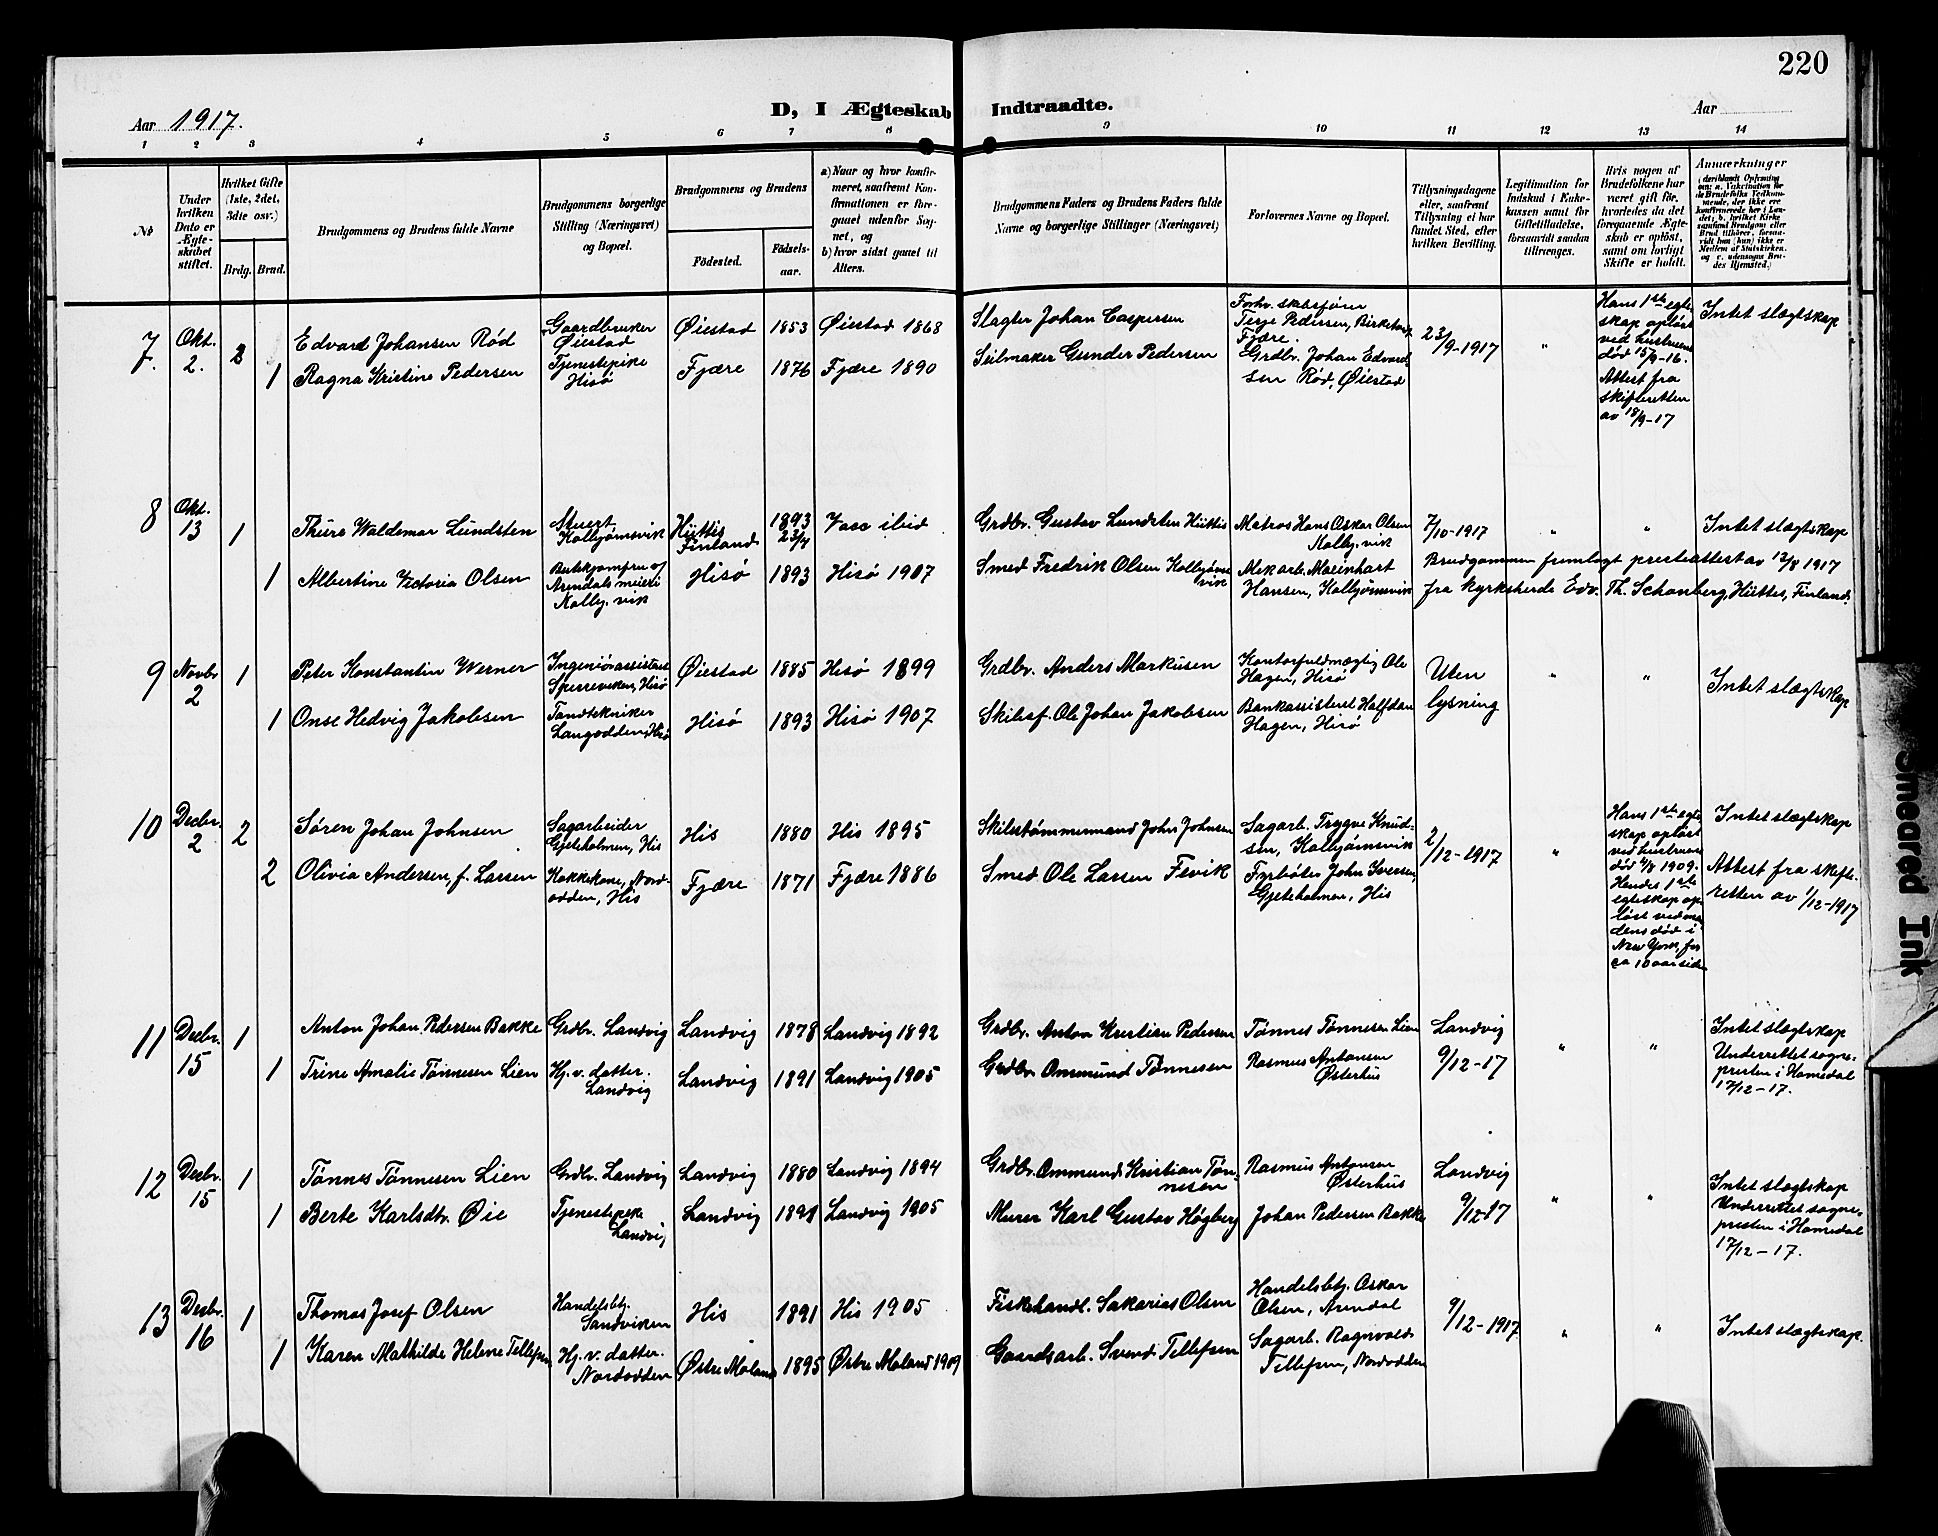 220
Aar 1917.
D, I Ægteskab Indtraadte.
Aar
1 2 3 4 5 6 7 8 9 10 11 12 13 14
No
Under hvilken Dato er Ægteskabet stiftet.
Hvilket Gifte (1ste, 2det, 3die osv.)
Brdg. Brud.
Brudgommens og Brudens fulde Navne
Brudgommens borgerlige Stilling (Næringsvei) og Bopæl.
Brudgommens og Brudens
Födested.
Födselsaar.
a) Naar og hvor konfirmeret, saafremt Konfirmationen er foregaaet udenfor Sognet, og
b) hvor sidst gaaet til Alters.
Brudgommens Faders og Brudens Faders fulde Navne og borgerlige Stillinger (Næringsvei)
Forlovernes Navne og Bopæl.
Tillysningsdagene eller, saafremt Tillysning ei har fundet Sted, efter hvilken Bevilling.
Legitimation for Indskud i Enkekassen samt for Giftetilladelse, forsaavidt saadan tiltrænges.
Hvis nogen af Brudefolkene har været gift før, hvorledes da det foregaaende Ægteskab er opløst, samt om lovligt Skifte er holdt.
Anmærkninger
7. Okt. 2. 2 Edvard Johansen Rød Gaardbruker Øiestad Øiestad 1853 Øiestad 1868 Slagter Johan Caspersen Forhv. skibsfører Terje Pedersen, Fjære. 23/9-1917 " Hans 1ste egteskap opløst ved hustruens død 15/9-16. Attest fra skifteretten av 18/9-17 Intet slægtskap
1 Ragna Kristine Pedersen Tjenestepike Hisø Fjære 1876 Fjære 1890 Seilmaker Gunder Pedersen Grdbr. Johan Edvardsen Rød, Øiestad
8 Okt. 13 1 Thure Waldemar Lundsten Stuert Kolbjørnsvik Hiittis Finland 1893 23/7 Vacc ibid Grdbr. Gustav Lundsten Hiittis Matros Hans Oskar Olsen Kolbj.vik 7/10-1917 " " Intet slægtskap
1 Albertine Victoria Olsen Butikjomfru af Arendals meieri Kolbj.vik Hisø 1893 Hisø 1907 Smed Fredrik Olsen Kolbjørnsvik Mekarb. Meinhart Hansen, Kolbjørnsvik Brudgommen fremlagt presteattest av 12/8 1917
fra Kyrkoherde Edv. Th. Schonberg, Hiittis, Finland.
9 Novbr 2 1 Peter Konstantin Werner Ingeniørassistent Sperreviken, Hisø Øiestad 1885 Hisø 1899 Grdbr. Anders Markusen Kontorfuldmægtig Ole Hagen, Hisø Uten lysning " " Intet slægtskap
1 Onse Hedvig Jakobsen Tandtekniker Langodden, Hisø Hisø 1893 Hisø 1907 Skibsf. Ole Johan Jakobsen Bankassistent Halfdan Hagen, Hisø
10 Decbr. 2 2 Søren Johan Johnsen Sagarbeider Gjeteholmen, His His 1880 His 1895 Skibstømmermand John Johnsen Sagarb. Trygve Knudsen, Kolbjørnsvik 2/12-1917 " Hans 1ste egteskap opløst ved hustruens død 4/8 1909. Hendes 1ste egteskap opløst ved mandens død i New York, for ca 10 aar siden Intet slægtskap
2 Olivia Andersen, f. Larsen Kokkekone, Nordodden, His Fjære 1871 Fjære 1886 Smed Ole Larsen Fevik Fyrbøter John Iversen, Gjeteholmen, His Attest fra skifteretten av 1/12-1917
11 Decbr. 15 1 Anton Johan Pedersen Bakke Grdbr. Landvig Landvig 1878 Landvig 1892 Grdbr. Anton Kristian Pedersen Tønnes Tønnesen Lien Landvig 9/12-17 " " Intet slægtskap Underrettet sognepresten i Homedal 17/12-17.
1 Trine Amalie Tønnesen Lien Hj. v. datter. Landvig Landvig 1891 Landvig 1905 Grdbr. Ommund Tønnesen Rasmus Antonsen Østerhus
12 Decbr. 15 1 Tønnes Tønnesen Lien Grdbr. Landvig Landvig 1880 Landvig 1894 Grdbr. Ommund Kristian Tønnesen Rasmus Antonsen Østerhus Landvig 9/12-17 " " Intet slægtskap Underrettet sognepresten i Homedal 17/12-17.
1 Berte Karlsdtr. Øie Tjenestepike Landvig Landvig 1891 Landvig 1905 Murer Karl Gustav Högberg Johan Pedersen Bakke
13 Decbr. 16 1 Thomas Josef Olsen Handelsbtj. Sandviken His 1891 His 1905 Fiskehandl. Sakarias Olsen Handelsbtj. Oskar Olsen, Arendal 9/12-1917 " " Intet slægtskap.
1 Karen Mathilde Helene Tellefsen Hj. v. datter. Nordodden Østre Moland 1895 Østre Moland 1909 Gaardsarb. Svend Tellefsen Sagarb. Ragnvald Tellefsen, Nordodden
Smeared Ink